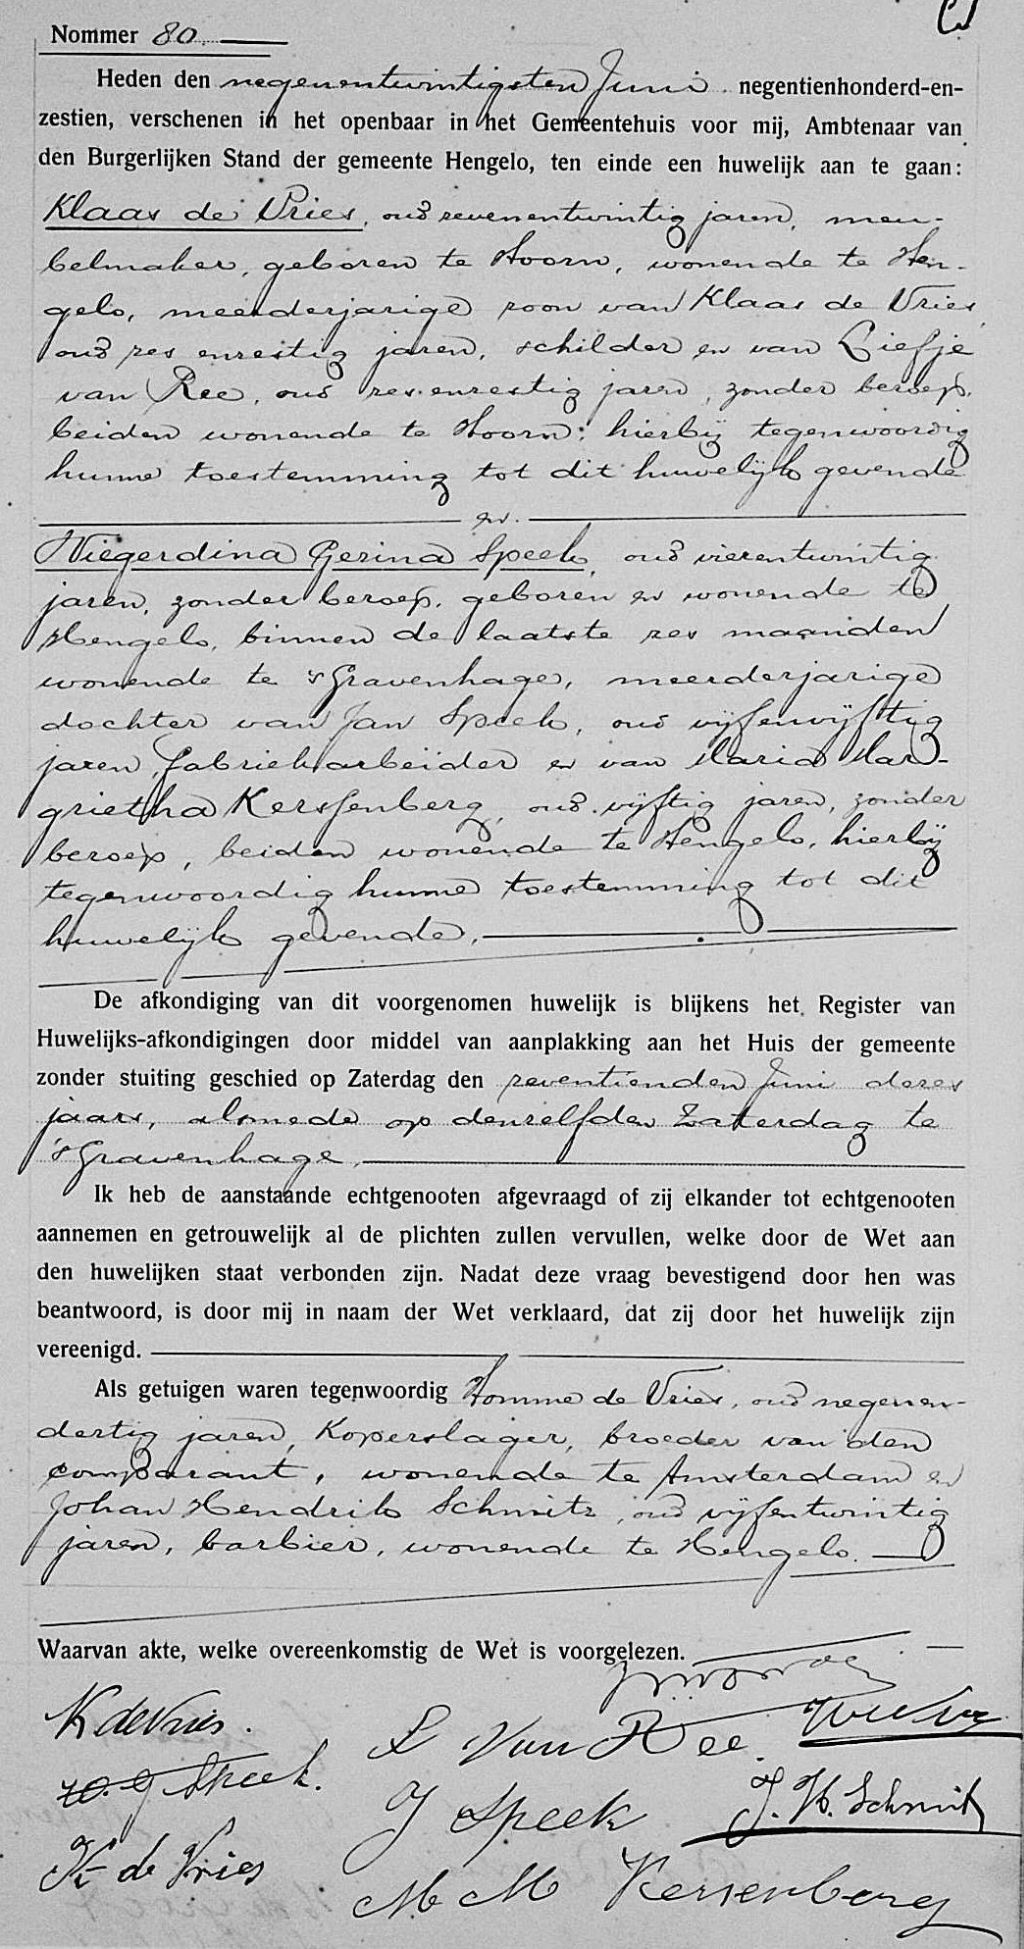 Nommer 80.
Heden den negenentwintigsten Juni negentienhonderd-en-
zestien, verschenen in het openbaar in het Gemeentehuis voor mij, Ambtenaar van
den Burgerlijken Stand der gemeente Hengelo, ten einde een huwelijk aan te gaan:
Klaas de Vries, oud zevenentwintig jaren, meu-
belmaker, geboren te Hoorn, wonende te Hen-
gelo, meerderjarige zoon van Klaas de Vries,
oud zes enzestig jaren, schilder en van Liefje
van Ree, oud zesenzestig jaren, zonder beroep,
beiden wonende te Hoorn; hierbij tegenwoordig
hunne toestemming tot dit huwelijk gevende
en.
Wiegerdina Gerina Speek, oud vierentwintig
jaren, zonder beroep, geboren en wonende te
Hengelo, binnen de laatste zes maanden
wonende te 's Gravenhage, meerderjarige
dochter van Jan Speek, oud vijfenvijftig
jaren, fabriekarbeider en van Maria Mar-
grietha Kerssenberg, oud vijftig jaren, zonder
beroep, beiden wonende te Hengelo, hierbij
tegenwoordig hunne toestemming tot dit
huwelijk gevende.
De afkondiging van dit voorgenomen huwelijk is blijkens het Register van
Huwelijks-afkondigingen door middel van aanplakking aan het Huis der gemeente
zonder stuiting geschied op Zaterdag den zeventienden Juni dezes
jaars, alsmede op denzelfden Zaterdag te
's Gravenhage.
Ik heb de aanstaande echtgenooten afgevraagd of zij elkander tot echtgenooten
aannemen en getrouwelijk al de plichten zullen vervullen, welke door de Wet aan
den huwelijken staat verbonden zijn. Nadat deze vraag bevestigend door hen was
beantwoord, is door mij in naam der Wet verklaard, dat zij door het huwelijk zijn
vereenigd.
Als getuigen waren tegenwoordig Homme de Vries, oud negenen-
dertig jaren, Koperslager, broeder van den
comparant, wonende te Amsterdam en
Johan Hendrik Schmitz, oud vijfentwintig
jaren, barbier, wonende te Hengelo.
Waarvan akte, welke overeenkomstig de Wet is voorgelezen.
K de Vries.
L Van Ree.
W. G Speek.
J Speek
J. H. Schmitz
K de Vries
M M Kerssenberg